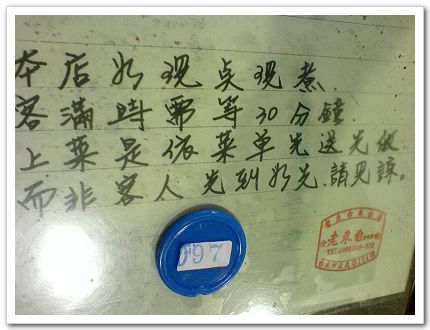 本店為現点現煮.
客滿時需等30分鐘.
上菜是依菜单先送先做
而非客人先到為先.請見諒。
097
老東台